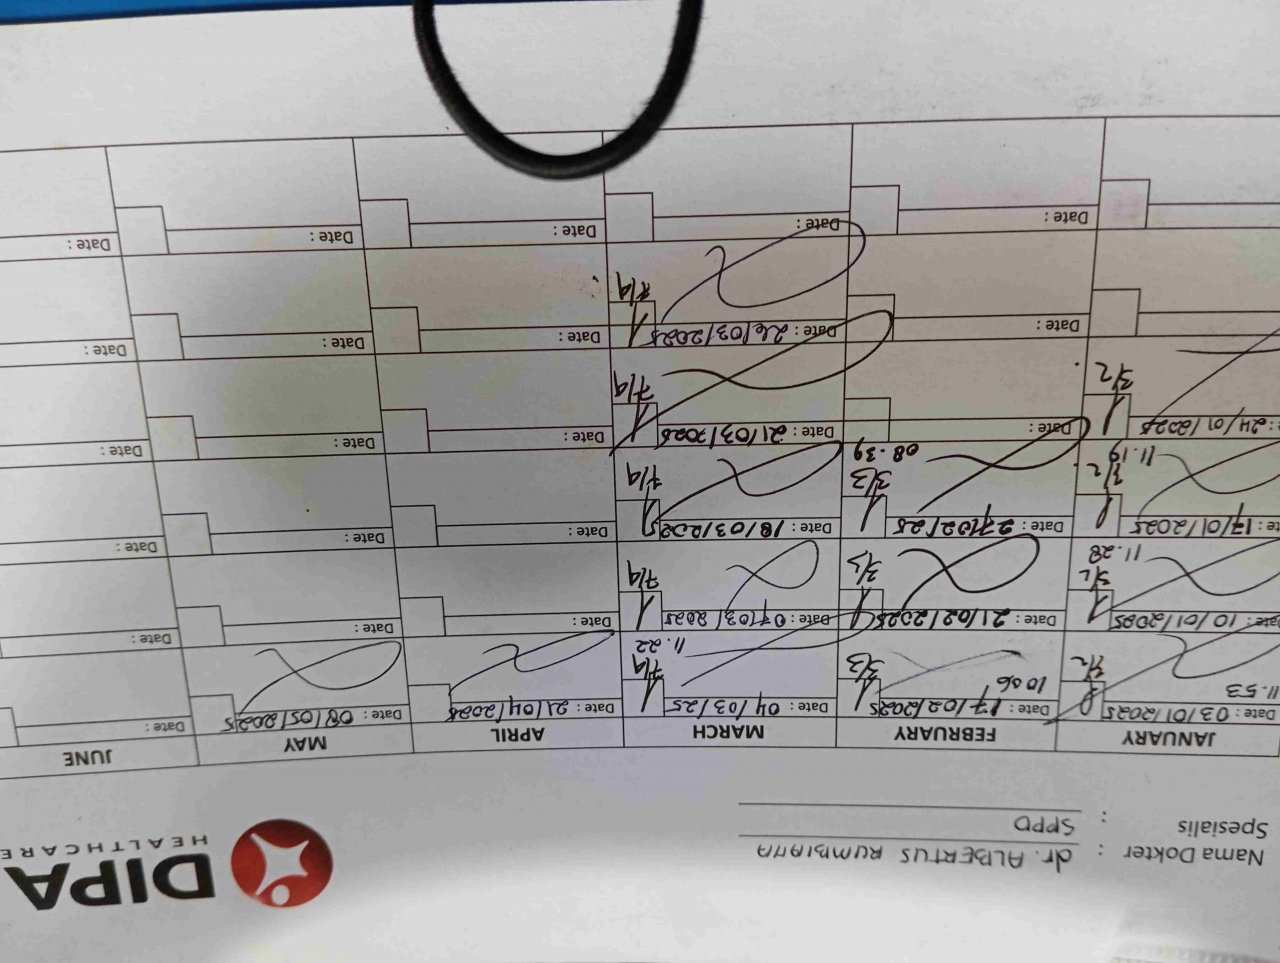 Nama Dokter : dr. ALBERTUS RUMBIANA
Spesialis : SPPD
DIPA
HEALTHCARE
JANUARY FEBRUARY MARCH APRIL MAY JUNE
Date : 03/01/2025 Date : 17/02/2025 Date : 04/03/25 Date : 21/04/2025 Date : 08/05/2025
11.53 3/2 1056 3/3 7/4
11.22
Date : 10/01/2025 Date : 21/02/2025 Date : 07/03/2025 Date : Date : Date :
3/2 3/3 7/4
11.28
Date : 17/01/2025 Date : 27/02/25 Date : 18/03/202 Date : Date : Date :
3/2 3/3 7/4
11.19 08.39
: 24/01/2025 Date : Date : 21/03/2025 Date : Date : Date :
3/2 7/4
Date : Date : 26/03/2025 Date : Date : Date :
7/4
Date : Date : Date : Date : Date :